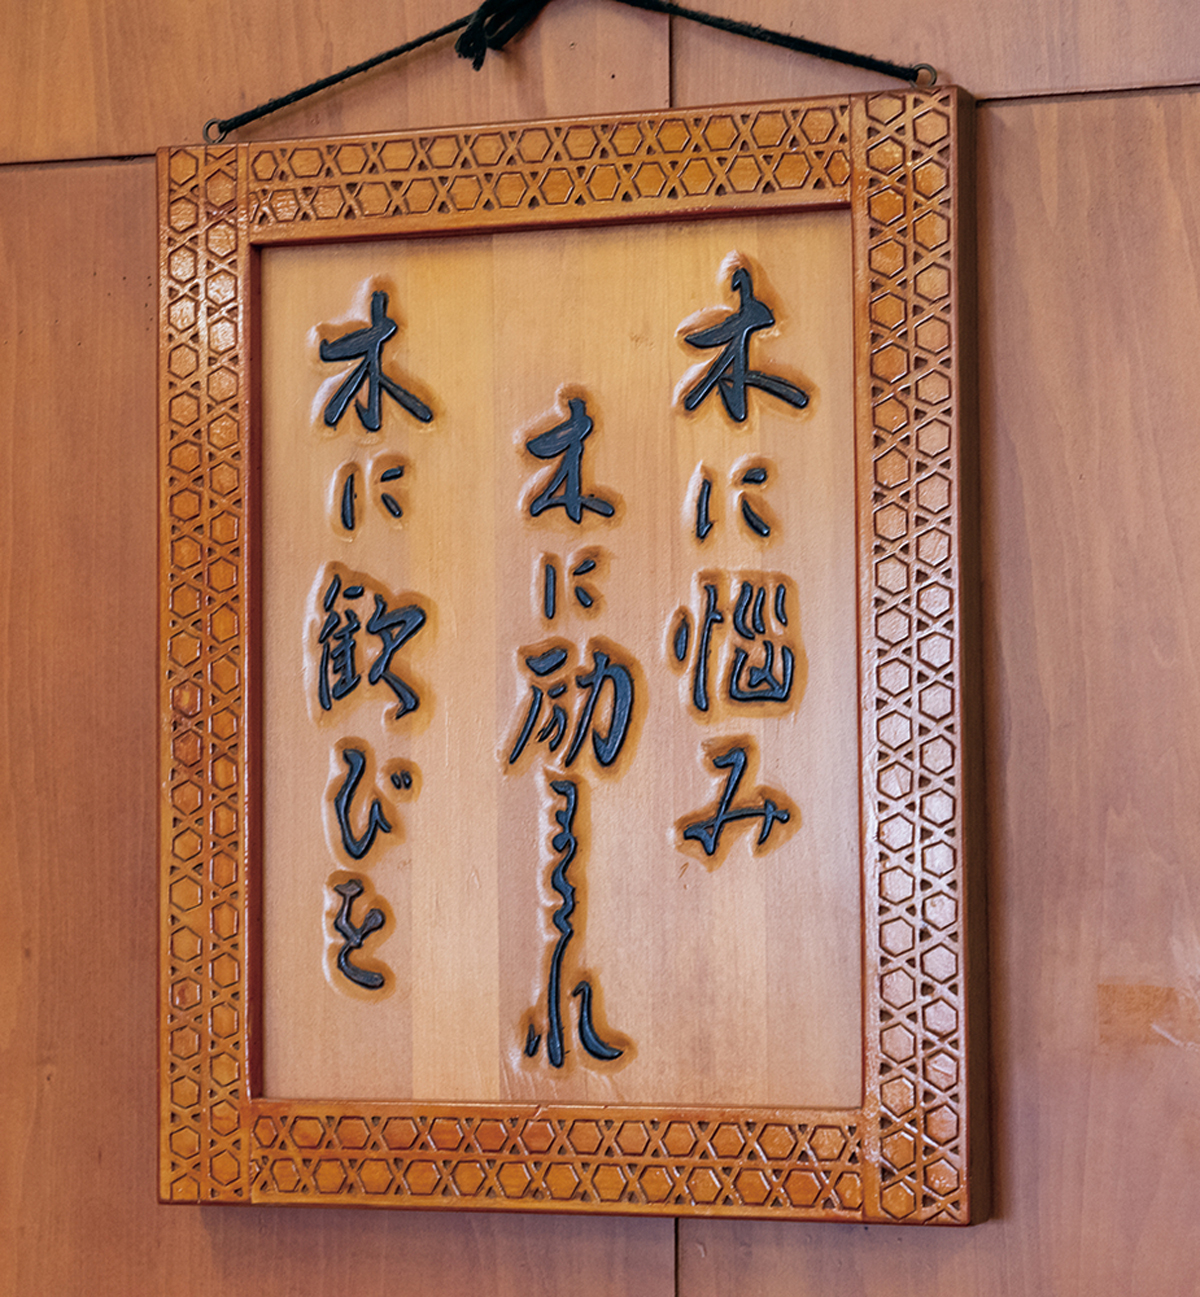 木に悩み
木に励まされ
木に歓びを